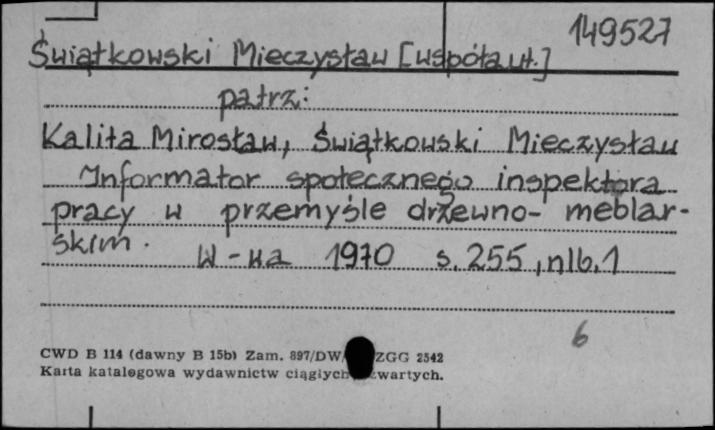 149527
Świątkowski Mieczysław [współaut.]
patrz:
Kalita Mirosław, Świątkowski Mieczysław
Informator społecznego inspektora
pracy w przemyśle drzewno-meblar-
skim.
W-wa 1970 s. 255, nlb. 1
6
CWD B 114 (dawny B 15b) Zam. 897/DW/ ZGG 2542
Karta katalogowa wydawnictw ciągłych zwartych.